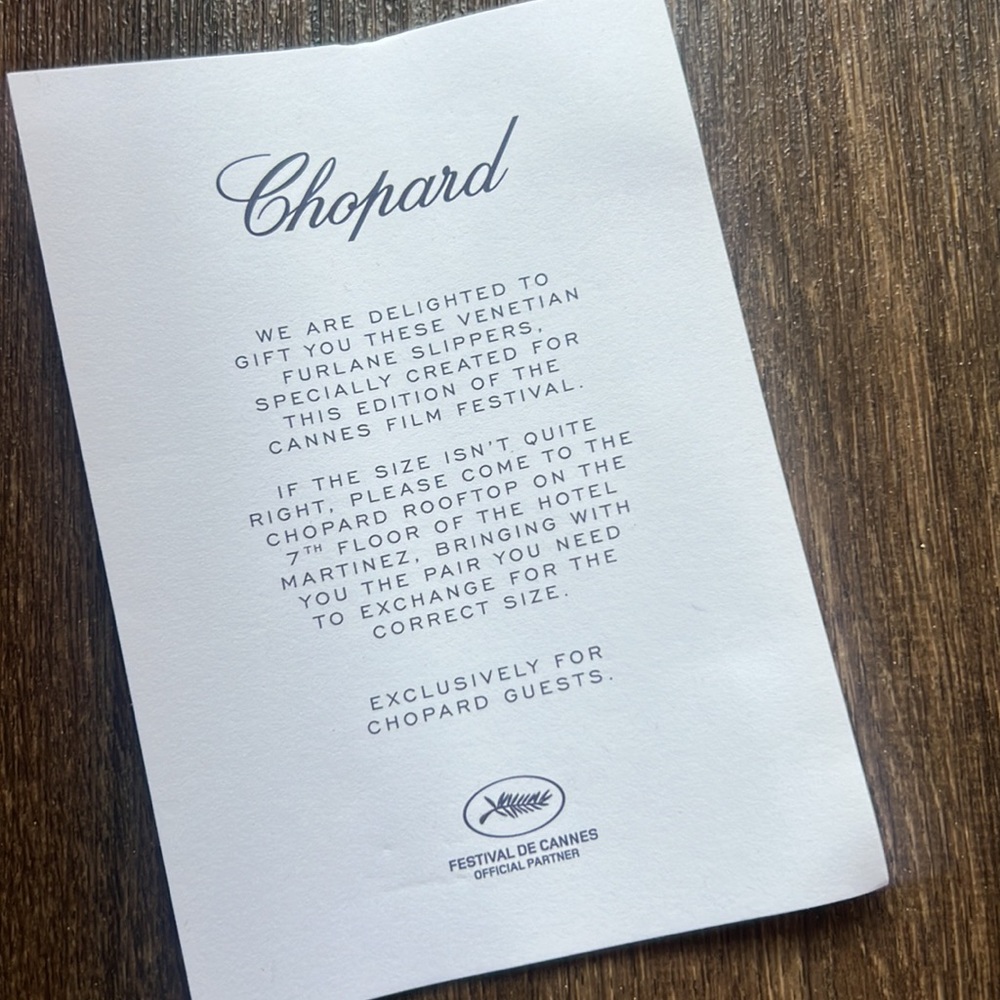 Chopard
WE ARE DELIGHTED TO
GIFT YOU THESE VENETIAN
FURLANE SLIPPERS,
SPECIALLY CREATED FOR
THIS EDITION OF THE
CANNES FILM FESTIVAL.
IF THE SIZE ISN'T QUITE
RIGHT, PLEASE COME TO THE
CHOPARD ROOFTOP ON THE
7TH FLOOR OF THE HOTEL
MARTINEZ, BRINGING WITH
YOU THE PAIR YOU NEED
TO EXCHANGE FOR THE
CORRECT SIZE.
EXCLUSIVELY FOR
CHOPARD GUESTS.
FESTIVAL DE CANNES
OFFICIAL PARTNER